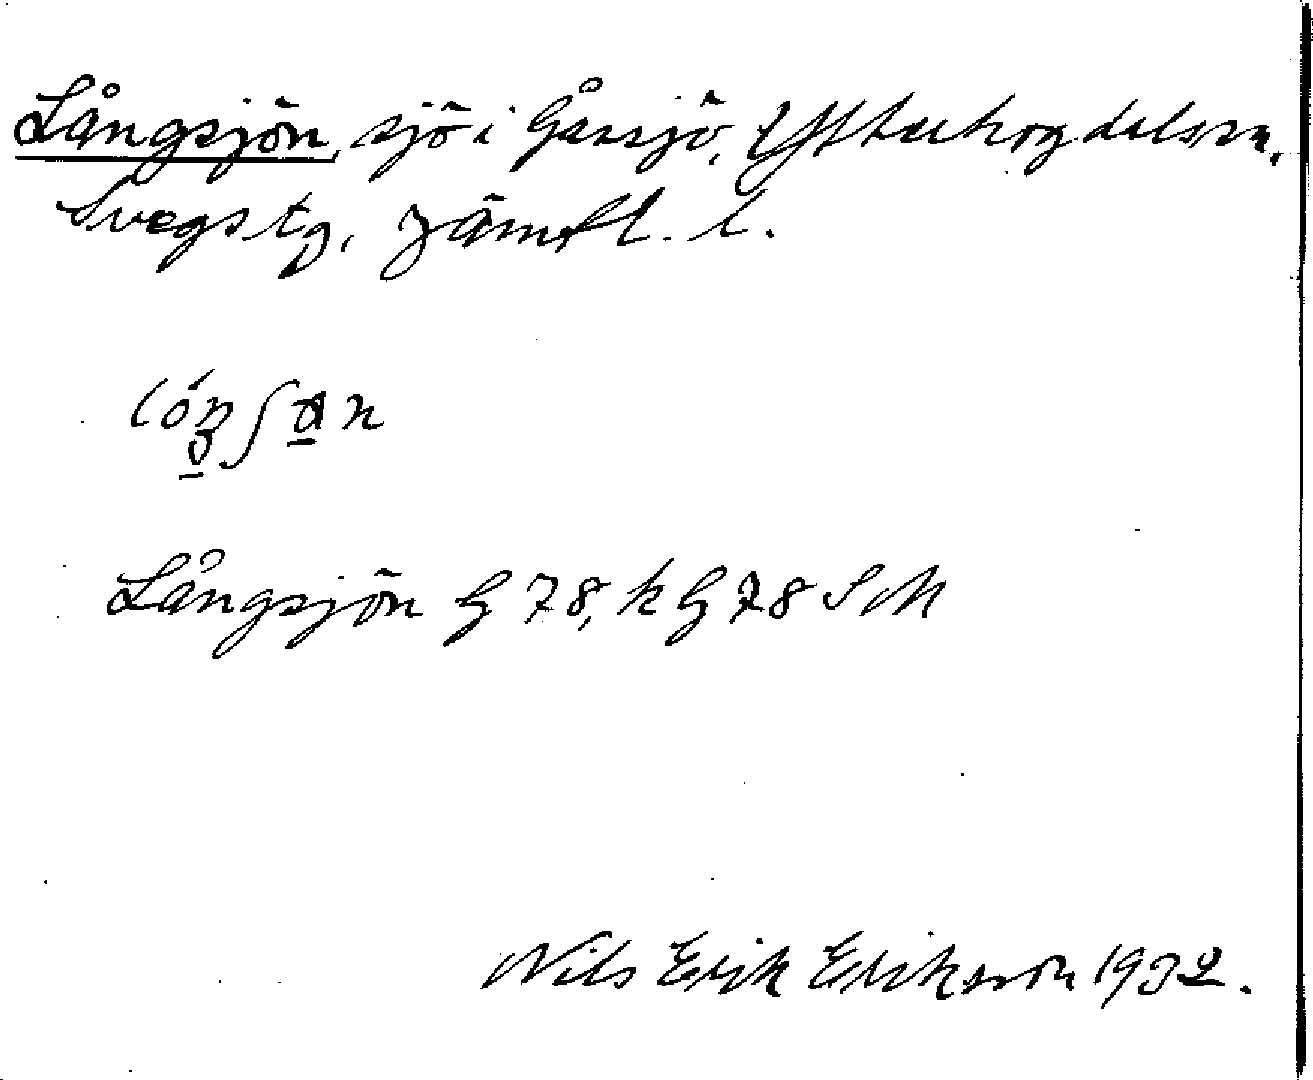 Långsjön, sjö i Gåssjö, Ytterhogdals sn,
Svegs tg, Jämtl. l.
Långsjön G 78, k G 78 SV
Nils Erik Eriksson 1932.